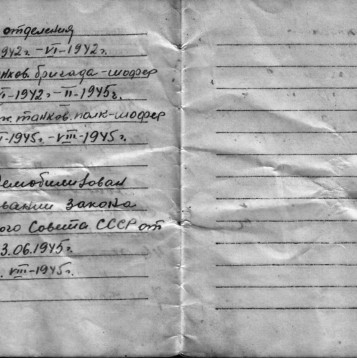 отделения
1942г. – VI – 1942г.
танков. бригада – шофер
VI – 1942г – II – 1945г.
ж. танков. полк – шофер
II – 1945г. – VIII – 1945г.
Демобилизован
вании закона
ного Совета СССР от
3.06.1945г.
VIII – 1945г.